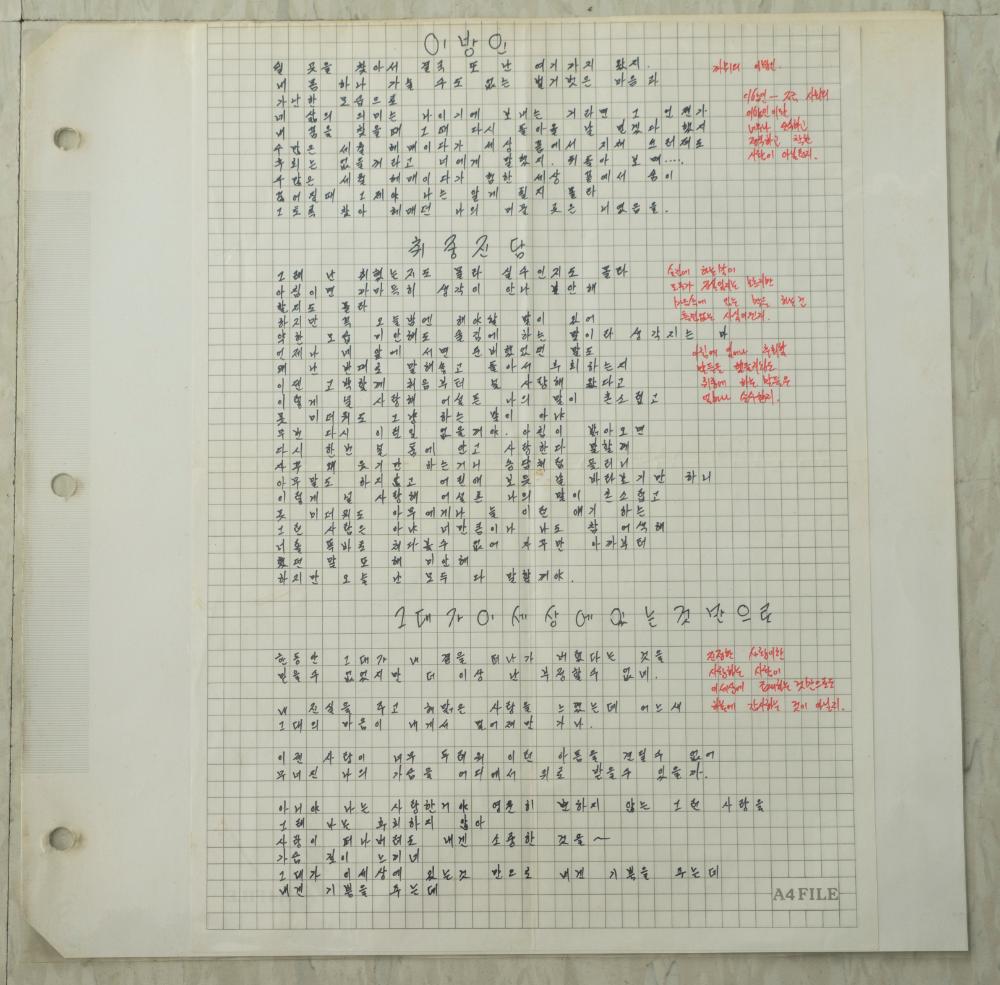 이방인
쉴 곳을 찾아서 결국 또 난 여기까지 왔지.
내 몸 하나 가눌 수도 없는 벌거벗은 마음과
가난한 모습으로
네 삶의 의미는 나이기에 보내는 거라면 그 언젠가
내 꿈을 찾을때 그때 다시 돌아올 날 믿겠다 했지
수많은 세월 헤매이다가 세상 끝에서 지쳐 쓰러져도
후회는 없을꺼라고 너에게 말했지. 뒤돌아 보며....
수많은 세월 헤매이다가 험한 세상 끝에서 숨이
끊어질때 그제야 나는 알게 될지 몰라
그토록 찾아 헤매던 나의 머물 곳은 너였음을.
저위의 이방인.
이방인 — 그는 사회의
이방인이다
너무나 순수하고
정직하고 착한
사람이 아닐런지.
취중진담
그래 난 취했는지도 몰라 실수인지도 몰라
아침이면 까마득히 생각이 안나 불안해
할지도 몰라
하지만 꼭 오늘밤엔 해야할 말이 있어
약한 모습 미안해도 술김에 하는 말이라 생각지는 마
언제나 네 앞에 서면 준비했었던 말도
왜 난 반대로 말해놓고 돌아서 후회하는지
이젠 고백할게 처음부터 널 사랑해 왔다고
이렇게 널 사랑해 어설픈 나의 말이 촌스럽고
못 미더워도 그냥 하는 말이 아냐
두번 다시 이런일 없을꺼야. 아침이 밝아오면
다시 한번 널 품에 안고 사랑한다 말할께
자꾸 왜 웃기만 하는거니 농담처럼 들리니
아무말도 하지않고 어린애 보듯 날 바라보기만 하니
이렇게 널 사랑해 어설픈 나의 말이 촌스럽고
못 미더워도 아무에게나 늘 이런 얘기 하는
그런 사람은 아냐 너만큼이나 나도 참 어색해
너를 똑바로 쳐다볼수 없어 자꾸만 아까부터
했던 말 또해 미안해
하지만 오늘 난 모두 다 말할꺼야.
술김에 하는말이
모두가 진실일지는 모르지만
마음속에 있는 말을 하는건
틀림없는 사실이겠지.
아침에 일어나 후회할
말들을 했을지라도
취중에 하는 말들은
얼마나 순수한지.
그대가 이 세상에 있는것 만으로
한동안 그대가 내 곁을 떠나가 버렸다는 것을
믿을수 없었지만 더 이상 난 부정할수 없네.
내 진실을 주고 해맑은 사랑을 느꼈는데 어느새
그대의 마음이 내게서 멀어져만 가나.
이젠 사랑이 너무 두려워 이런 아픔을 견딜수 없어
무너진 나의 가슴을 어디에서 위로 받을수 있을까.
아니야 나는 사랑한거야 영원히 변하지 않는 그런 사랑을
그래 나는 후회하지 않아
사랑이 떠나버려도 내겐 소중한 것을~
가슴 깊이 느끼네
그대가 이세상에 있는것 만으로 내겐 기쁨을 주는데
내겐 기쁨을 주는데
진정한 사랑이란
사랑하는 사람이
이세상에 존재하는 것만으로도
하늘에 감사하는 것이 아닐지.
A4 FILE